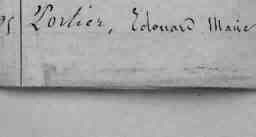 25 Portier, Edouard Marie